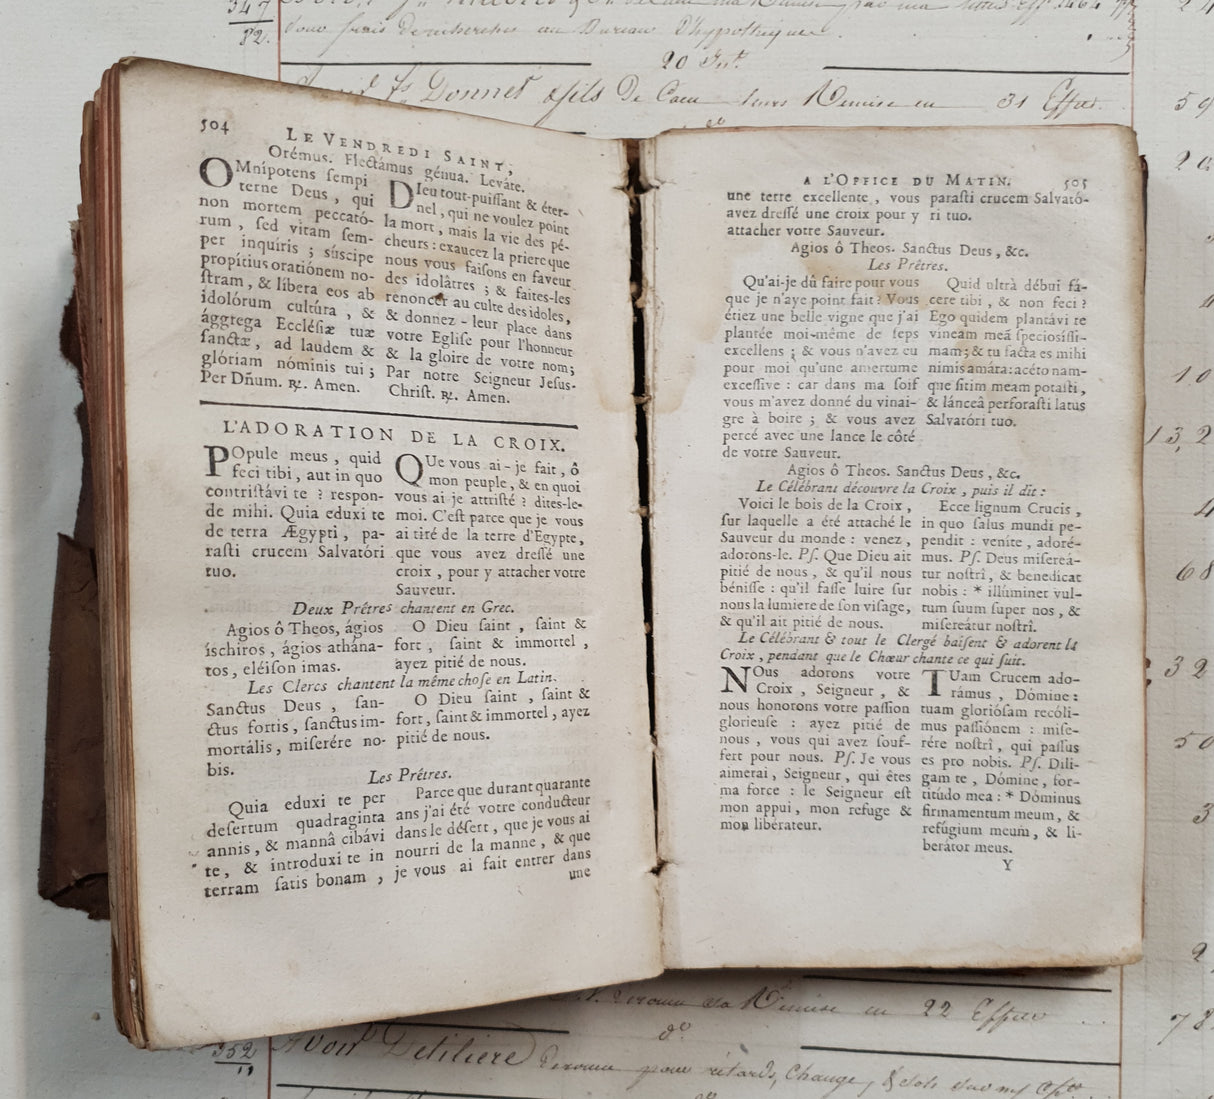 347
52.
pour frais de recherches au Bureau d'hypothèques
20 Jet.
Donnet & fils De Caen leurs Remise en 31 Effets.
504
LE VENDREDI SAINT,
Orémus. Flectámus génua. Leváte.
OMnípotens sempi
terne Deus, qui
non mortem peccató-
rum, sed vitam sem-
per inquiris; súscipe
propítius oratiónem no-
ſtram, & líbera eos ab
idolórum cultúra, &
ággrega Eccléſiæ tuæ
ſanctæ, ad laudem &
glóriam nóminis tui;
Per Dñum. ℟. Amen.
DIeu tout-puiſſant & éter-
nel, qui ne voulez point
la mort, mais la vie des pé-
cheurs: exaucez la priere que
nous vous faiſons en faveur
des idolâtres; & faites-les
renoncer au culte des idoles,
& donnez-leur place dans
votre Egliſe pour l'honneur
& la gloire de votre nom;
Par notre Seigneur Jeſus-
Chriſt. ℟. Amen.
L'ADORATION DE LA CROIX.
POpule meus, quid
feci tibi, aut in quo
contriſtávi te ? reſpon-
de mihi. Quia eduxi te
de terra Ægypti, pa-
raſti crucem Salvatóri
tuo.
QUe vous ai-je fait, ô
mon peuple, & en quoi
vous ai je attriſté ? dites-le-
moi. C'eſt parce que je vous
ai tiré de la terre d'Egypte,
que vous avez dreſſé une
croix, pour y attacher votre
Sauveur.
Deux Prêtres chantent en Grec.
Agios ô Theos, ágios
íschiros, ágios athána-
tos, eléiſon imas.
O Dieu ſaint, ſaint &
fort, ſaint & immortel,
ayez pitié de nous.
Les Clercs chantent la même choſe en Latin.
Sanctus Deus, ſan-
ctus fortis, ſanctus im-
mortális, miſerére no-
bis.
O Dieu ſaint, ſaint &
fort, ſaint & immortel, ayez
pitié de nous.
Les Prêtres.
Quia eduxi te per
deſertum quadraginta
annis, & mannâ cibávi
te, & introduxi te in
terram ſatis bonam,
Parce que durant quarante
ans j'ai été votre conducteur
dans le déſert, que je vous ai
nourri de la manne, & que
je vous ai fait entrer dans
une
A L'OFFICE DU MATIN. 505
une terre excellente, vous
avez dreſſé une croix pour y
attacher votre Sauveur.
paraſti crucem Salvató-
ri tuo.
Agios ô Theos. Sanctus Deus, &c.
Les Prêtres.
Qu'ai-je dû faire pour vous
que je n'aye point fait ? Vous
étiez une belle vigne que j'ai
plantée moi-même de ſeps
excellens; & vous n'avez eu
pour moi qu'une amertume
exceſſive : car dans ma ſoif
vous m'avez donné du vinai-
gre à boire; & vous avez
percé avec une lance le côté
de votre Sauveur.
Quid ultrà débui fá-
cere tibi, & non feci ?
Ego quidem plantávi te
vineam meã ſpeciosíſſi-
mam; & tu facta es mihi
nimis amára: acéto nam-
que ſitim meam potaſti,
& lánceâ perforaſti latus
Salvatóri tuo.
Agios ô Theos. Sanctus Deus, &c.
Le Célébrant découvre la Croix, puis il dit:
Voici le bois de la Croix,
ſur laquelle a été attaché le
Sauveur du monde : venez,
adorons-le. Pſ. Que Dieu ait
pitié de nous, & qu'il nous
béniſſe : qu'il faſſe luire ſur
nous la lumiere de ſon viſage,
& qu'il ait pitié de nous.
Ecce lignum Crucis,
in quo ſalus mundi pe-
pendit : venite, adoré-
mus. Pſ. Deus miſereá-
tur noſtrî, & benedicat
nobis : * illúminet vul-
tum ſuum ſuper nos, &
miſereátur noſtrî.
Le Célébrant & tout le Clergé baiſent & adorent la
Croix, pendant que le Chœur chante ce qui ſuit.
NOus adorons votre
Croix, Seigneur, &
nous honorons votre paſſion
glorieuſe : ayez pitié de
nous, vous qui avez ſouf-
fert pour nous. Pſ. Je vous
aimerai, Seigneur, qui êtes
ma force : le Seigneur eſt
mon appui, mon refuge &
mon libérateur.
TUam Crucem ado-
rámus, Dómine :
tuam glorióſam recóli-
mus paſſiónem : miſe-
rére noſtrî, qui paſſus
es pro nobis. Pſ. Dili-
gam te, Dómine, for-
titúdo mea : * Dóminus
firmamentum meum, &
refúgium meum, & li-
berátor meus.
Y
sa Remise en 22 Effets
do
352
11
Avoir Detiliere pour retards, Change,